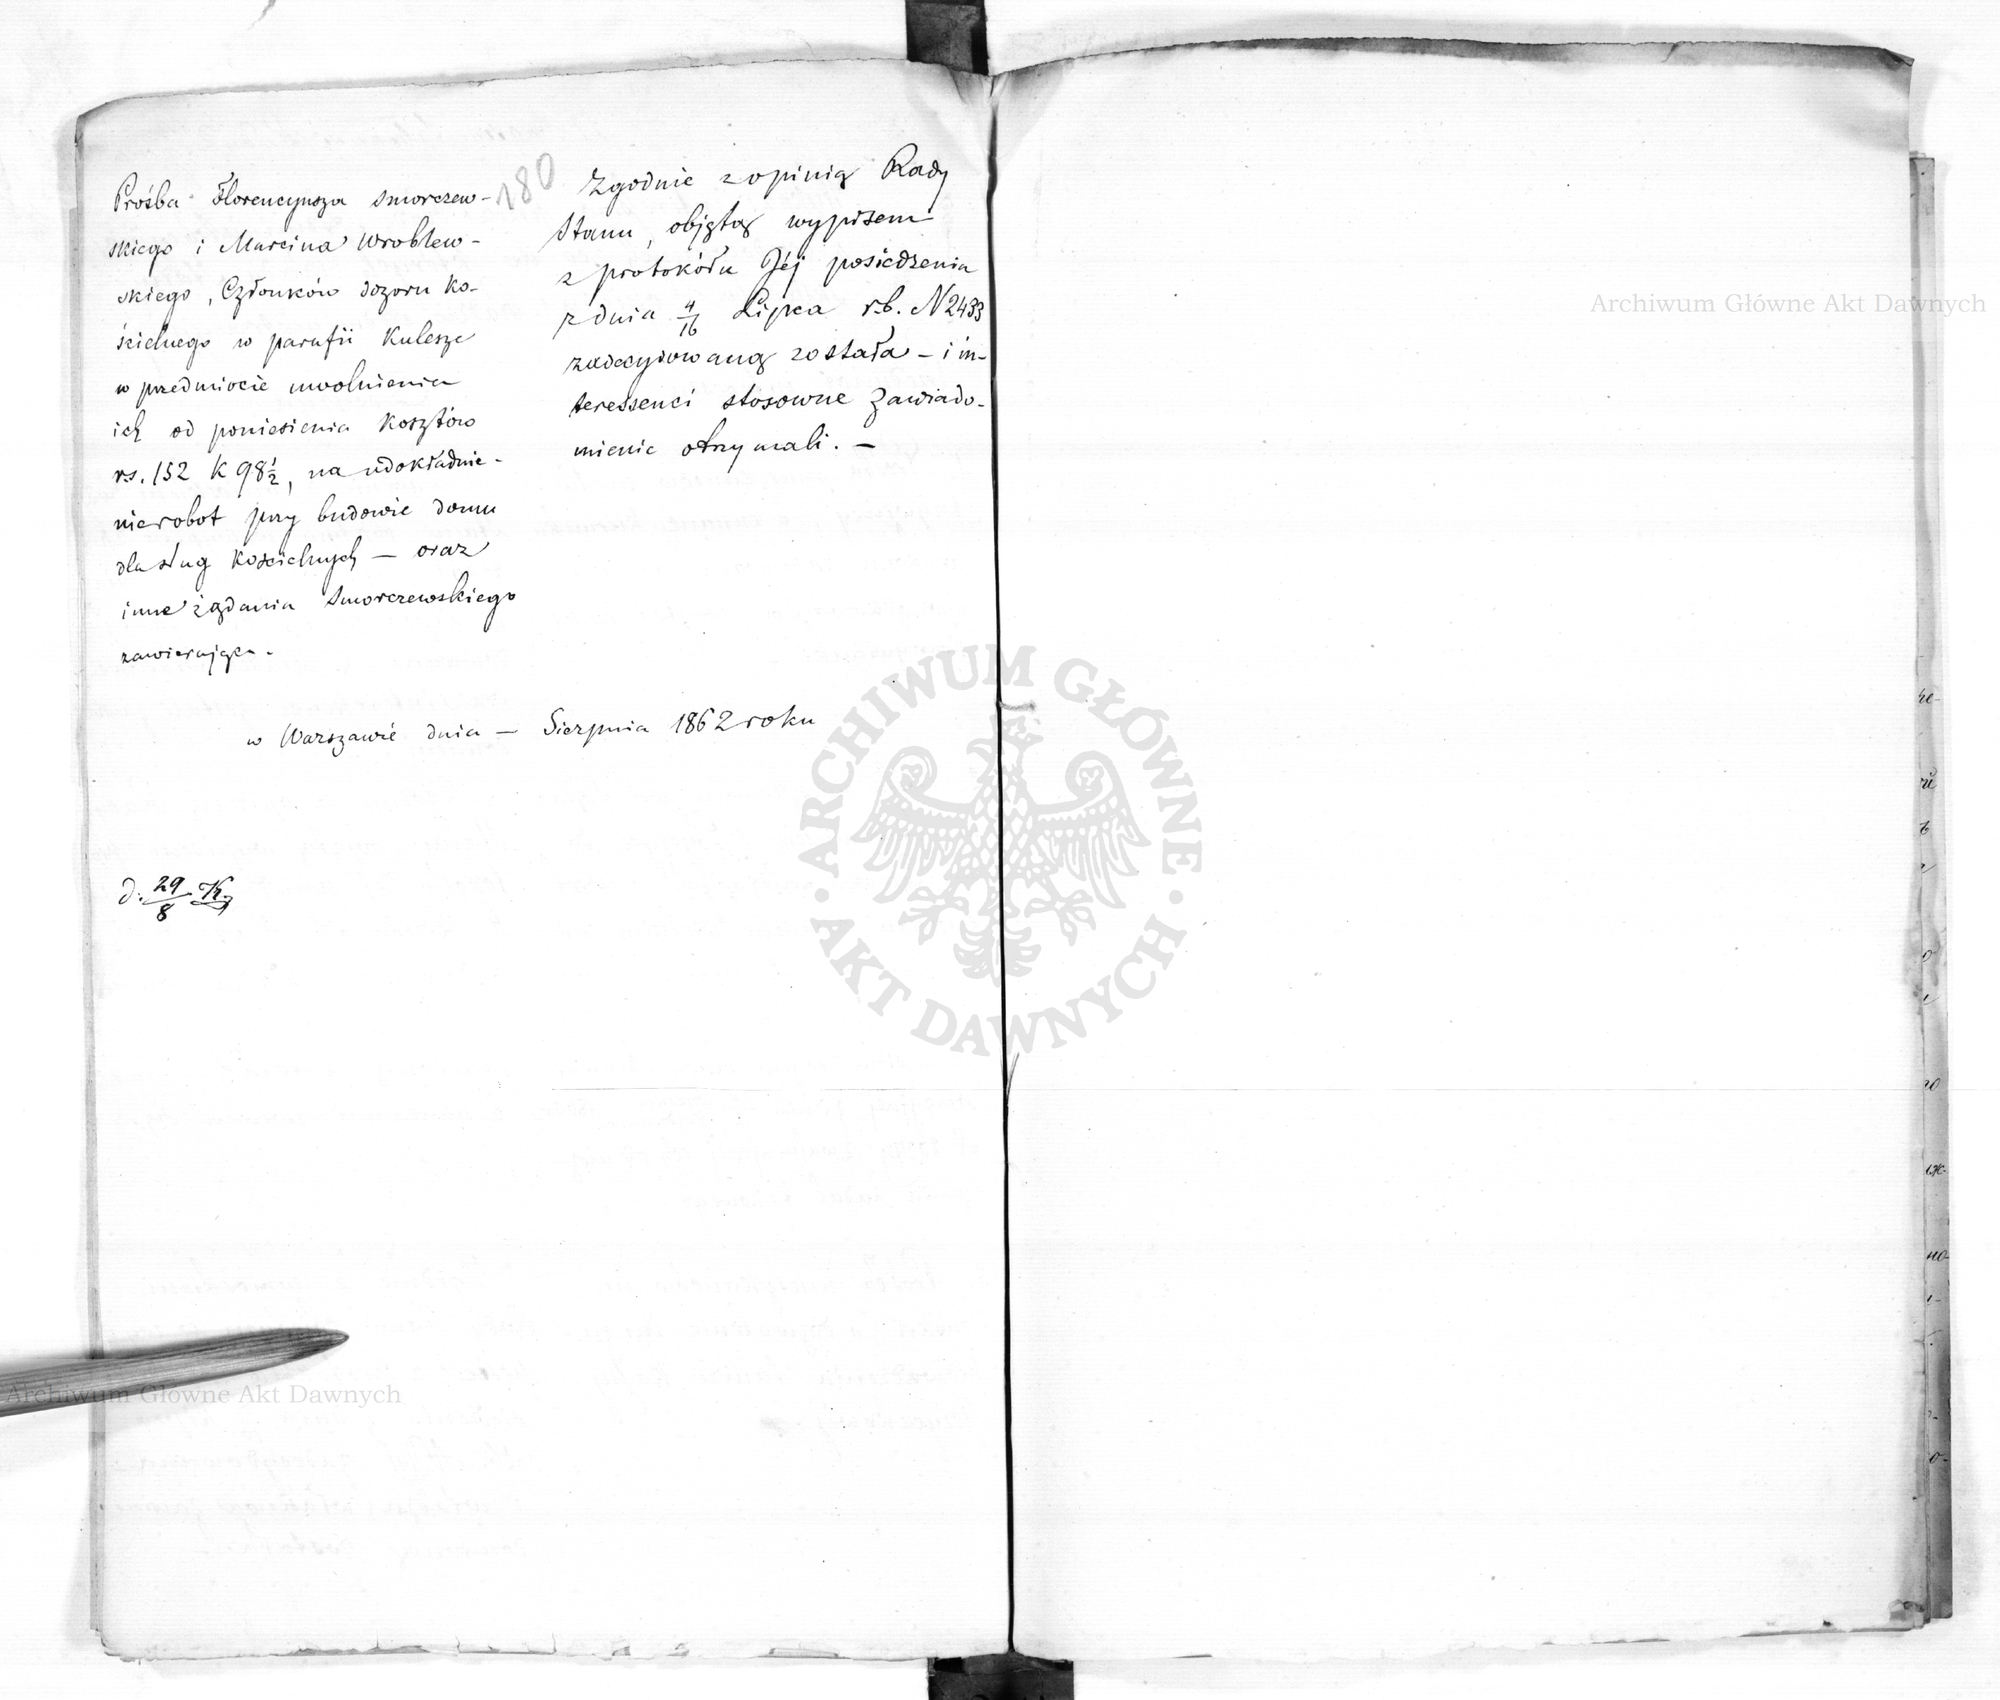 180
Prośba Florencyusza Smorczew-
skiego i Marcina Wroblew-
skiego, Członków dozoru Ko-
ścielnego w parafii Kulesze
w przedmiocie uwolnienia
ich od poniesienia Kosztów
rs. 152 K 98½, na udokładnie-
nie robot przy budowie domu
dla sług Kościelnych — oraz
inne żądania Smorczewskiego
zawierająca.
Zgodnie z opinią Rady
Stanu, objętą wypisem
z protokółu Jéj posiedzenia
z dnia 4/16 Lipca r.b. N 2433
zadecydowaną została — i in-
teressenci stosowne zawiado-
mienie otrzymali. —
w Warszawie dnia — Sierpnia 1862 roku
d. 29/8
ARCHIWUM GŁÓWNE AKT DAWNYCH
Archiwum Główne Akt Dawnych
Archiwum Główne Akt Dawnych